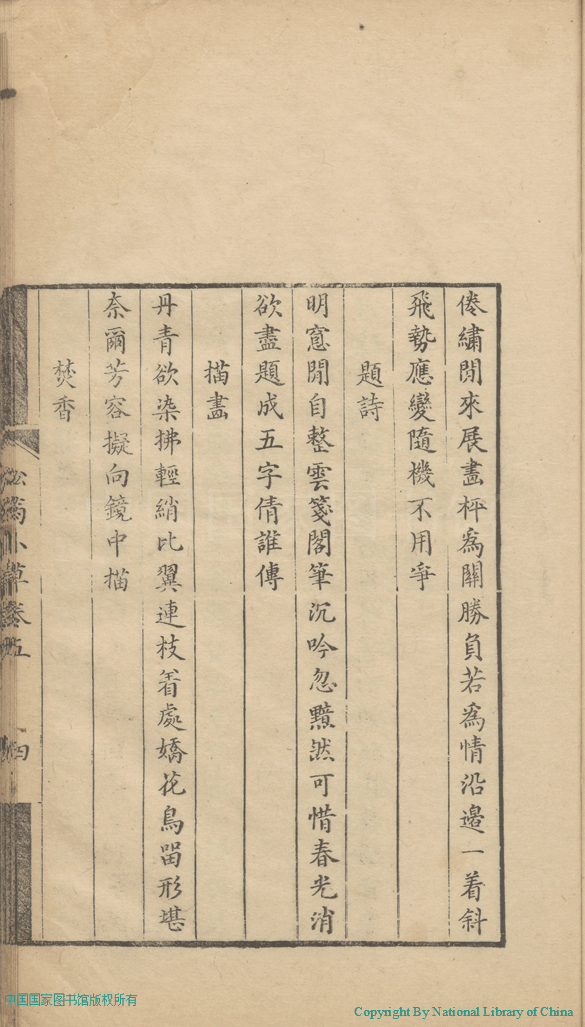 倦繡閒來展畫枰為關勝負若為情沿邊一着斜
飛勢應變隨機不用爭
題詩
明窻閒自整雲箋閣筆沉吟忽黯然可惜春光消
欲盡題成五字倩誰傳
描畫
丹青欲染拂輕綃比翼連枝着處嬌花鳥畱形堪
奈爾芳容擬向鏡中描
焚香
小草卷五
四
中国国家图书馆版权所有
Copyright By National Library of China